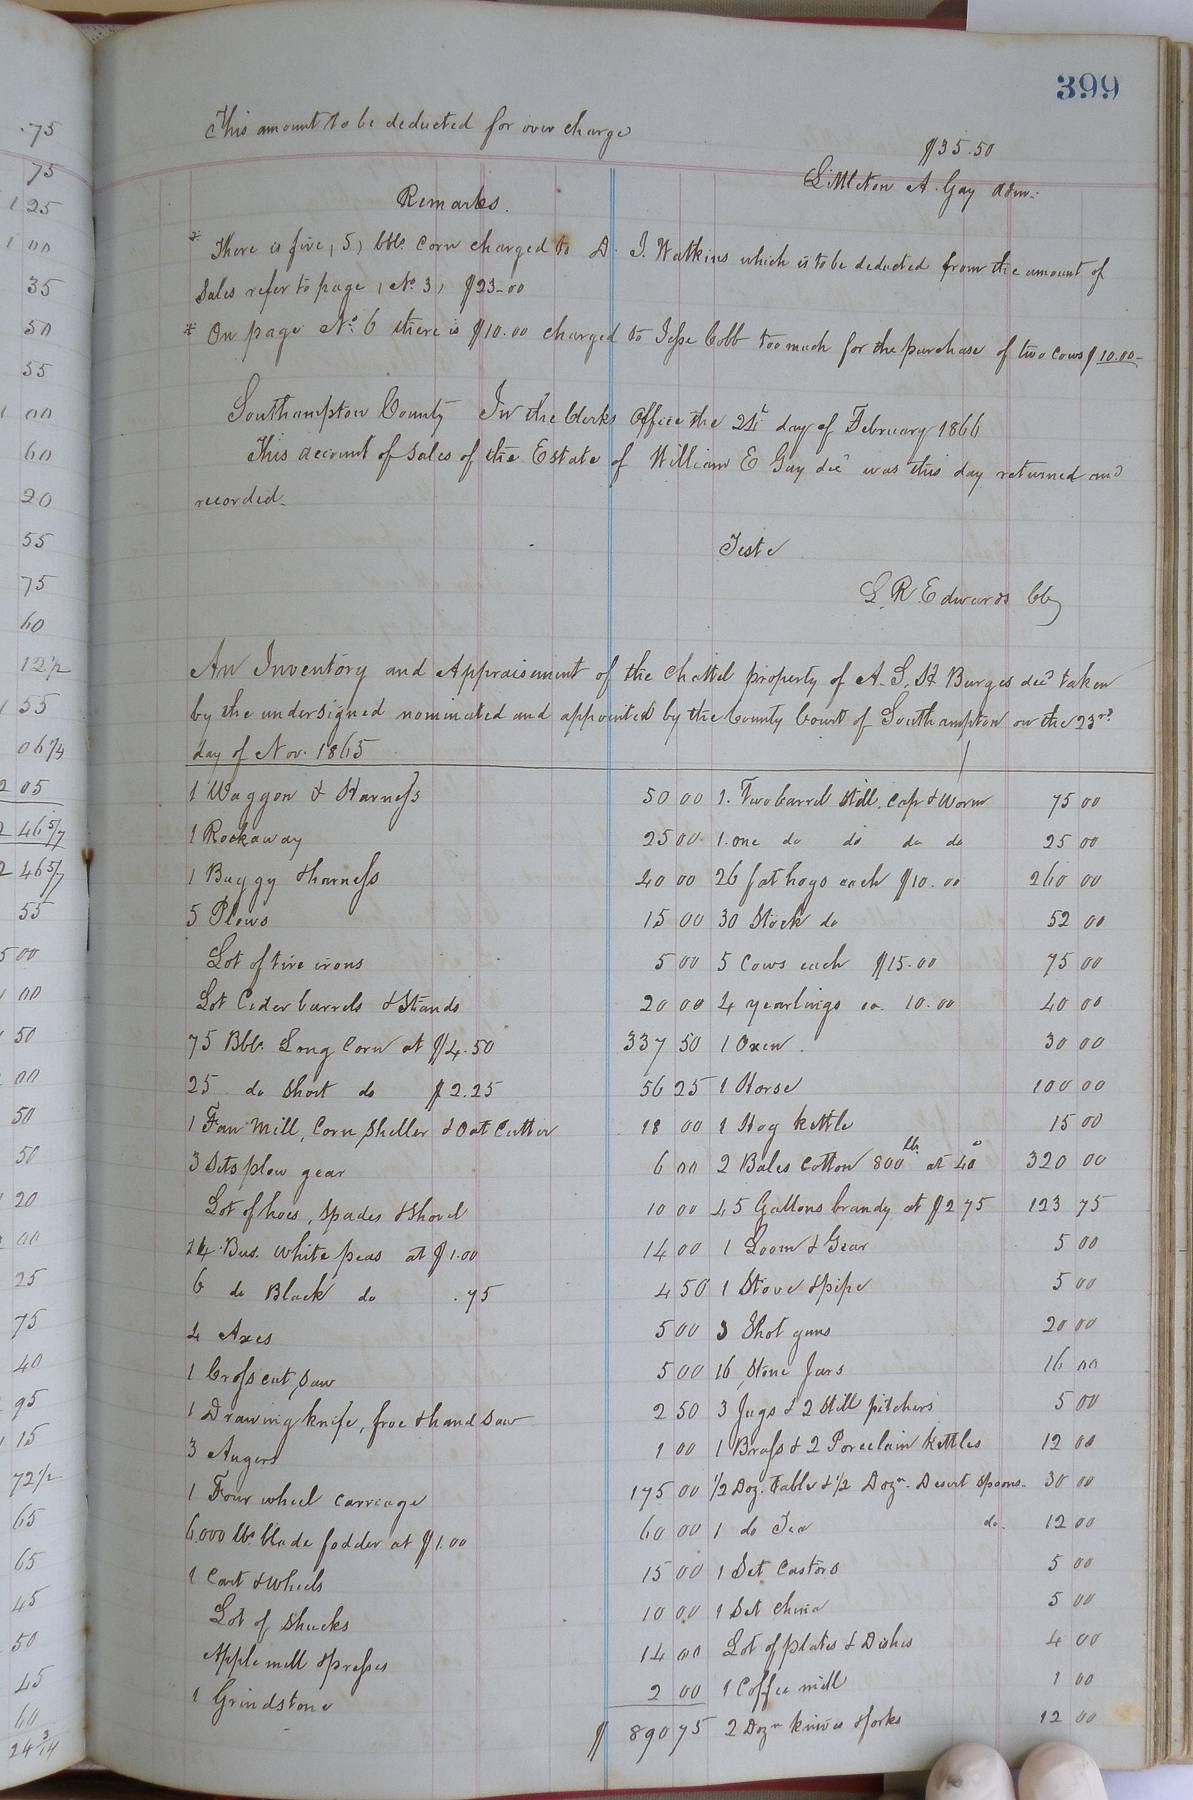 399
This amount to be deducted for over charge $35.50
Littleton A. Gay Adm.
Remarks.
* There is five (5) bbls. Corn charged to D. J. Watkins which is to be deducted from the amount of
Sales refer to page (No. 3) $23-00
* On page No. 6 there is $10.00 charged to Jesse Cobb too much for the purchase of two cows $10.00-
Southampton County In the Clerks Office the 24t day of February 1866
This account of Sales of the Estate of William E Gay decd was this day returned and
recorded.
Teste
L. R. Edwards
An Inventory and Appraisement of the chattel property of A. S. H Burges decd taken
by the undersigned nominated and appointed by the County Court of Southampton on the 23rd
day of Nov. 1865
1 Waggon & Harness 50 00 1. Two barrel Still, cap & Worm 75 00
1 Rockaway 25 00 1. one do do do do 25 00
1 Buggy & harness 40 00 26 fat hogs each $10.00 260 00
5 Plows 15 00 30 Stock do 52 00
Lot of tire irons 5 00 5 Cows each $15.00 75 00
Lot Cider barrels & Stands 20 00 4 yearlings ea. 10.00 40 00
75 Bbls. Long Corn at $4.50 337 50 1 Oxen 30 00
25 do Short do $2.25 56 25 1 Horse 100 00
1 Fan Mill, Corn Sheller & Oat Cutter 18 00 1 Hog kettle 15 00
3 Sets plow gear 6 00 2 Bales Cotton 800 lb. at 40c 320 00
Lot of hoes, Spades & Shovel 10 00 45 Gallons brandy at $2 75 123 75
14 Bus. White peas at $1.00 14 00 1 Loom & Gear 5 00
6 do Black do .75 4 50 1 Stove & pipe 5 00
4 Axes 5 00 3 Shot guns 20 00
1 Cross cut Saw 5 00 16 Stone Jars 16 00
1 Drawing knife, froe & hand Saw 2 50 3 Jugs & 2 Still pitchers 5 00
3 Augers 1 00 1 Brass & 2 Porcelain kettles 12 00
1 Four wheel carriage 175 00 1/2 Doz. Table & 1/2 Dozn. Desert Spoons. 30 00
6,000 lbs. blade fodder at $1.00 60 00 1 do Tea do. 12 00
1 Cart & Wheels 15 00 1 Set Castors 5 00
Lot of Shucks 10 00 1 Set China 5 00
Apple mill & presses 14 00 Lot of plates & Dishes 4 00
1 Grindstone 2 00 1 Coffee mill 1 00
$ 890 75 2 Dozn knives & forks 12 00